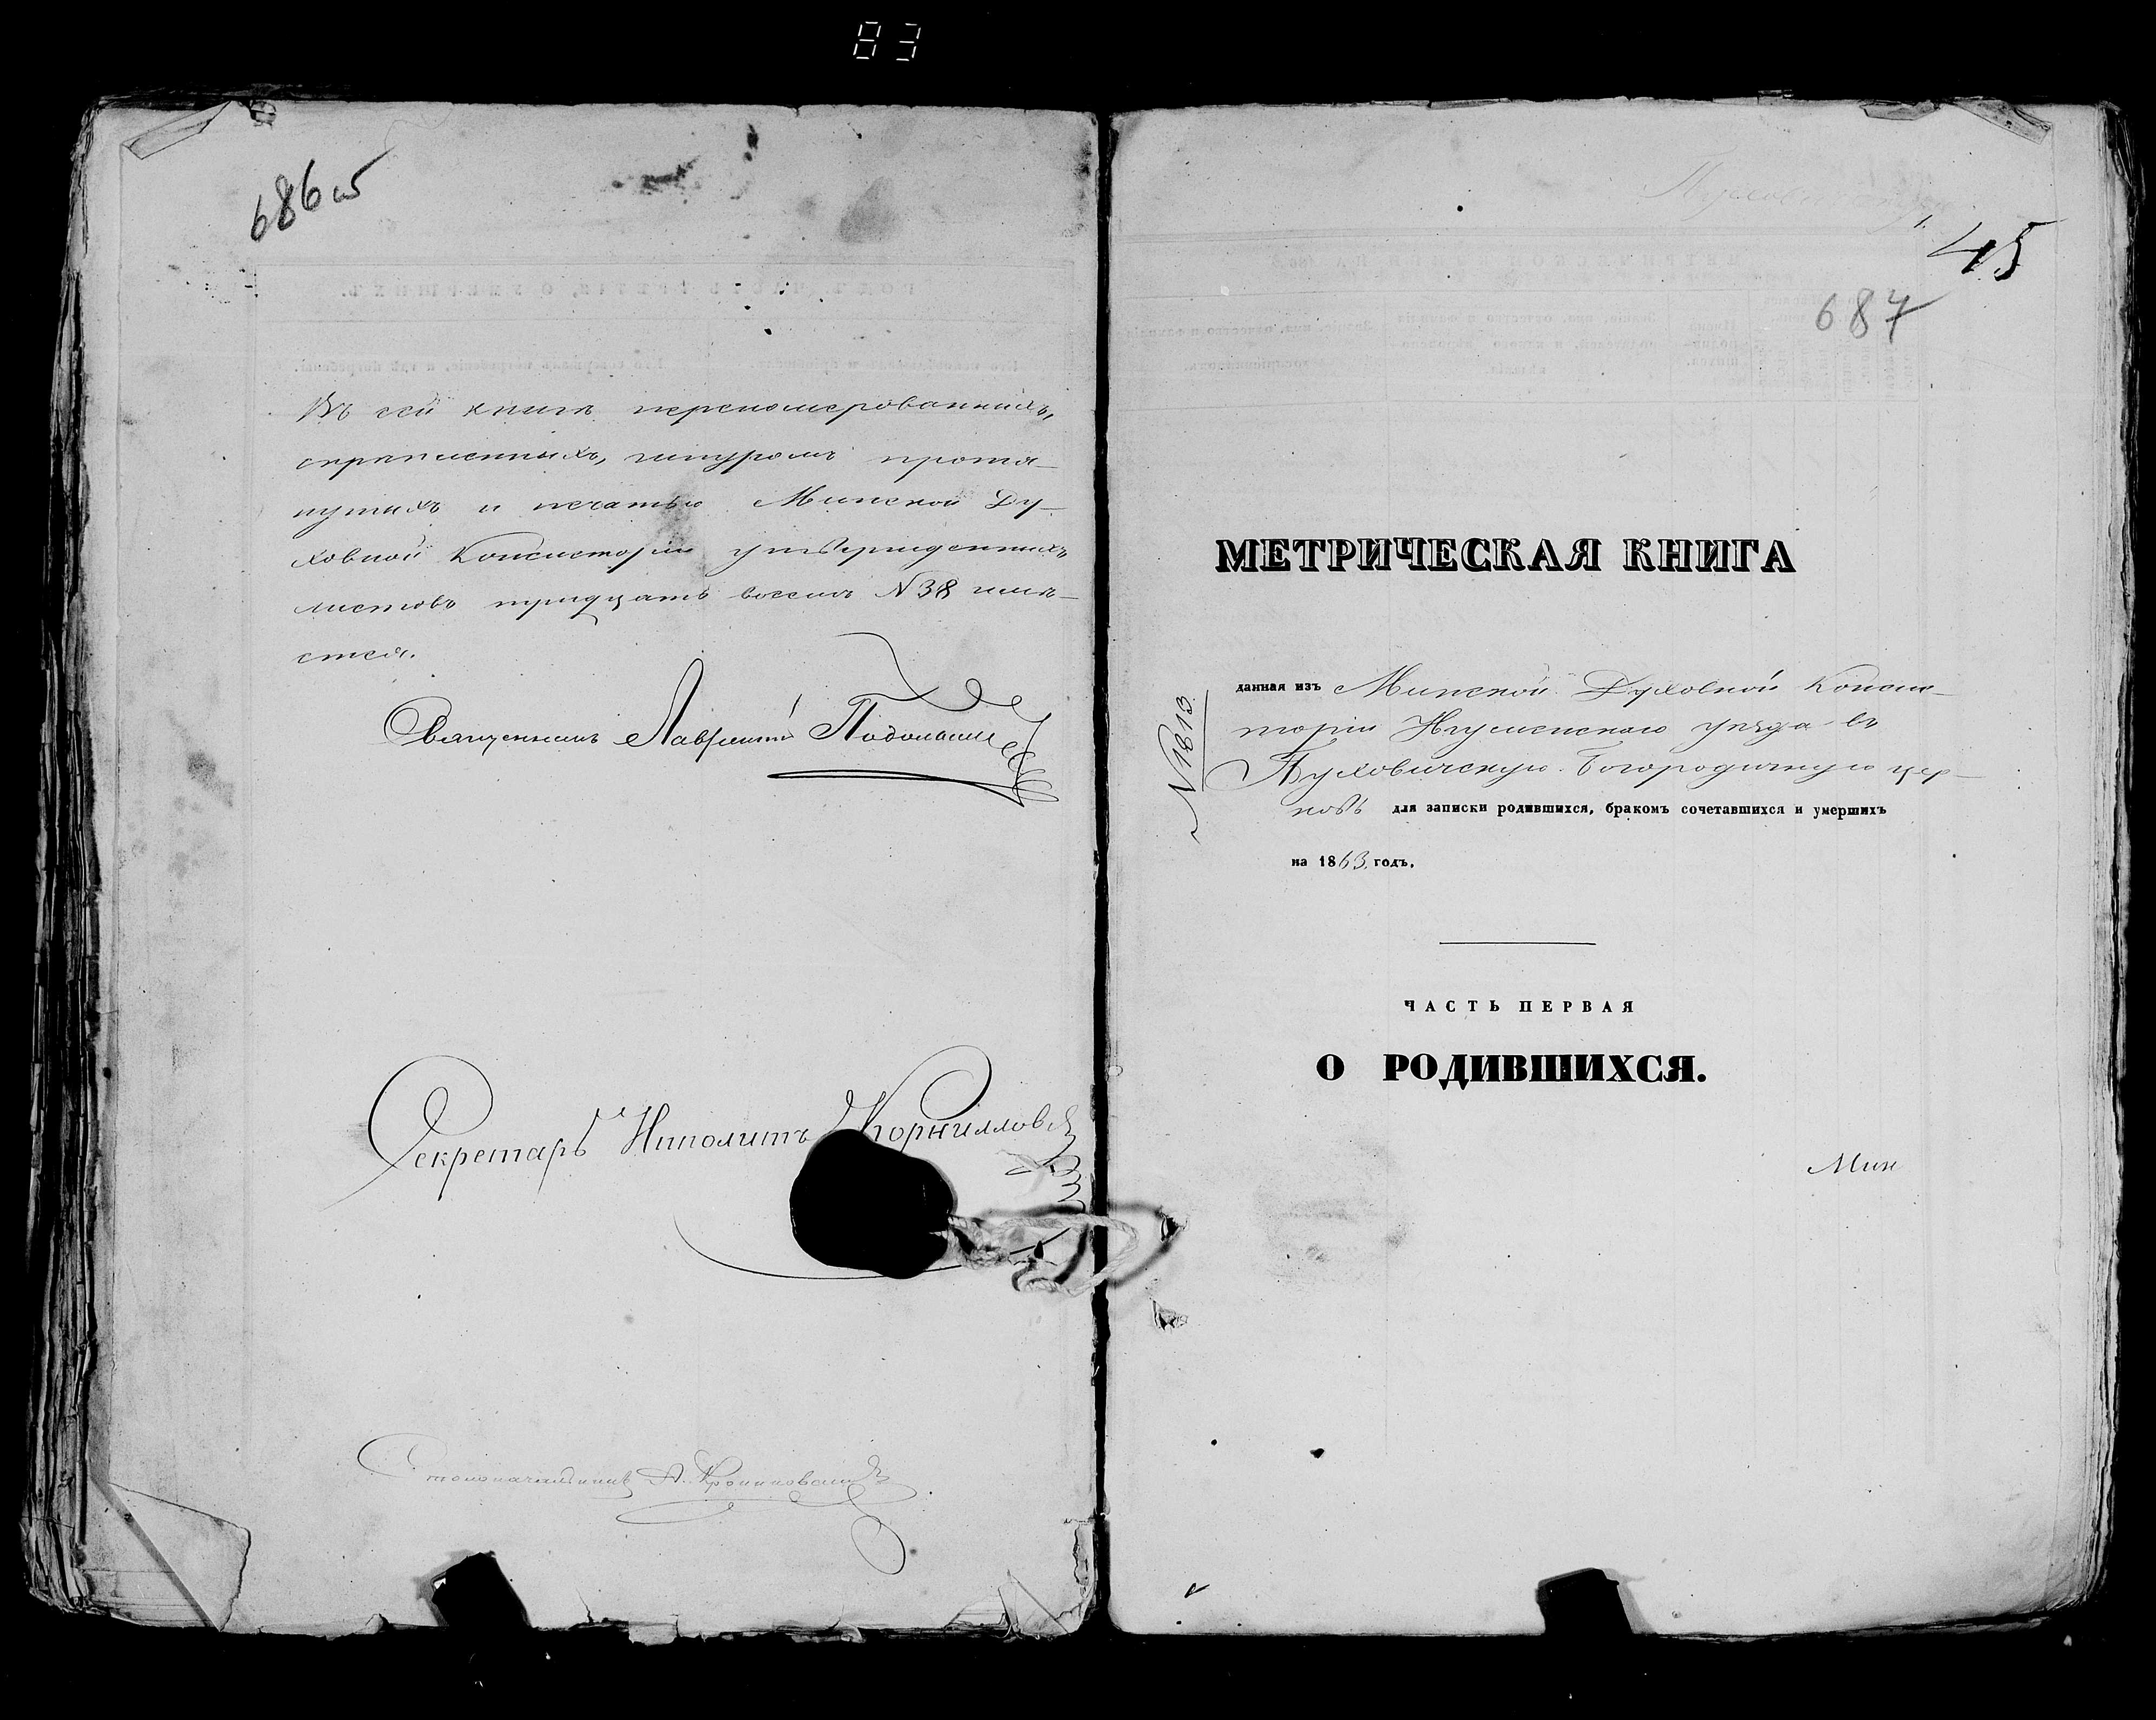 83
686 об
Въ сей книгѣ переномерованныхъ,
скрѣпленныхъ, шнуромъ протя-
нутыхъ и печатью Минской Ду-
ховной Консисторіи утвержденныхъ
листовъ тридцать восемь N 38 имѣ-
ется.
Священникъ Лаврентій
Секретарь Иполитъ Корнилловъ
Столоначальникъ А.
1.
45
687
МЕТРИЧЕСКАЯ КНИГА
N 1813.
данная изъ Минской Духовной Консис-
торіи Игуменскаго уѣзда въ
Пуховичскую Богородичную цер-
ковь для записки родившихся, бракомъ сочетавшихся и умершихъ
на 1863. годъ.
ЧАСТЬ ПЕРВАЯ
О РОДИВШИХСЯ.
Мин